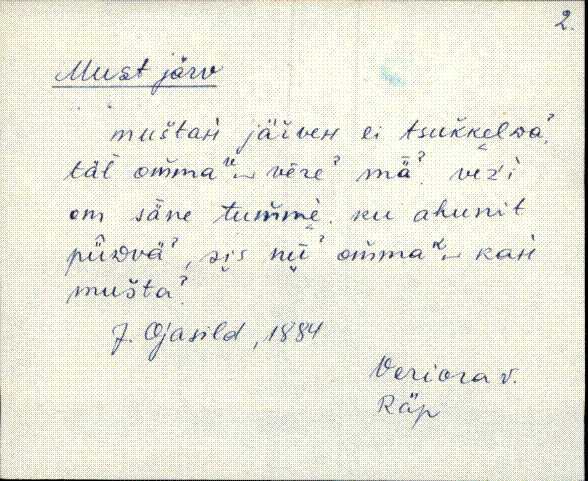 2.
Must järv
muštaн jäŕveн ei tsuk̆kelDa?,
täl om̆maᵏ‿ vēre? mä̅? veźi
om säne tum̆mè, ku ahunit
pǖDvä?, sis nǖ? om̆maᵏ‿ kaн
mušta?
J. Ojasild, 1884
Veriora v.
Räp